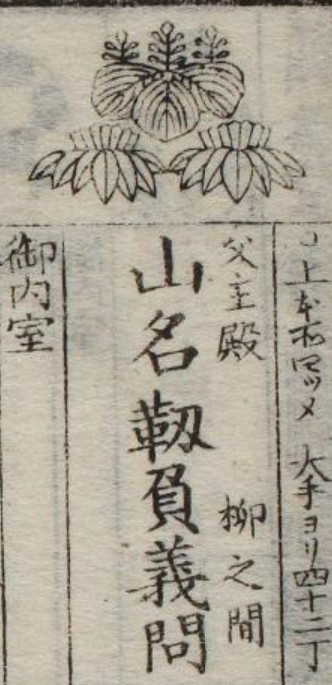 上本所四ツメ 大手ヨリ四十二丁
父主殿 柳之間
山名靱負義問
御内室